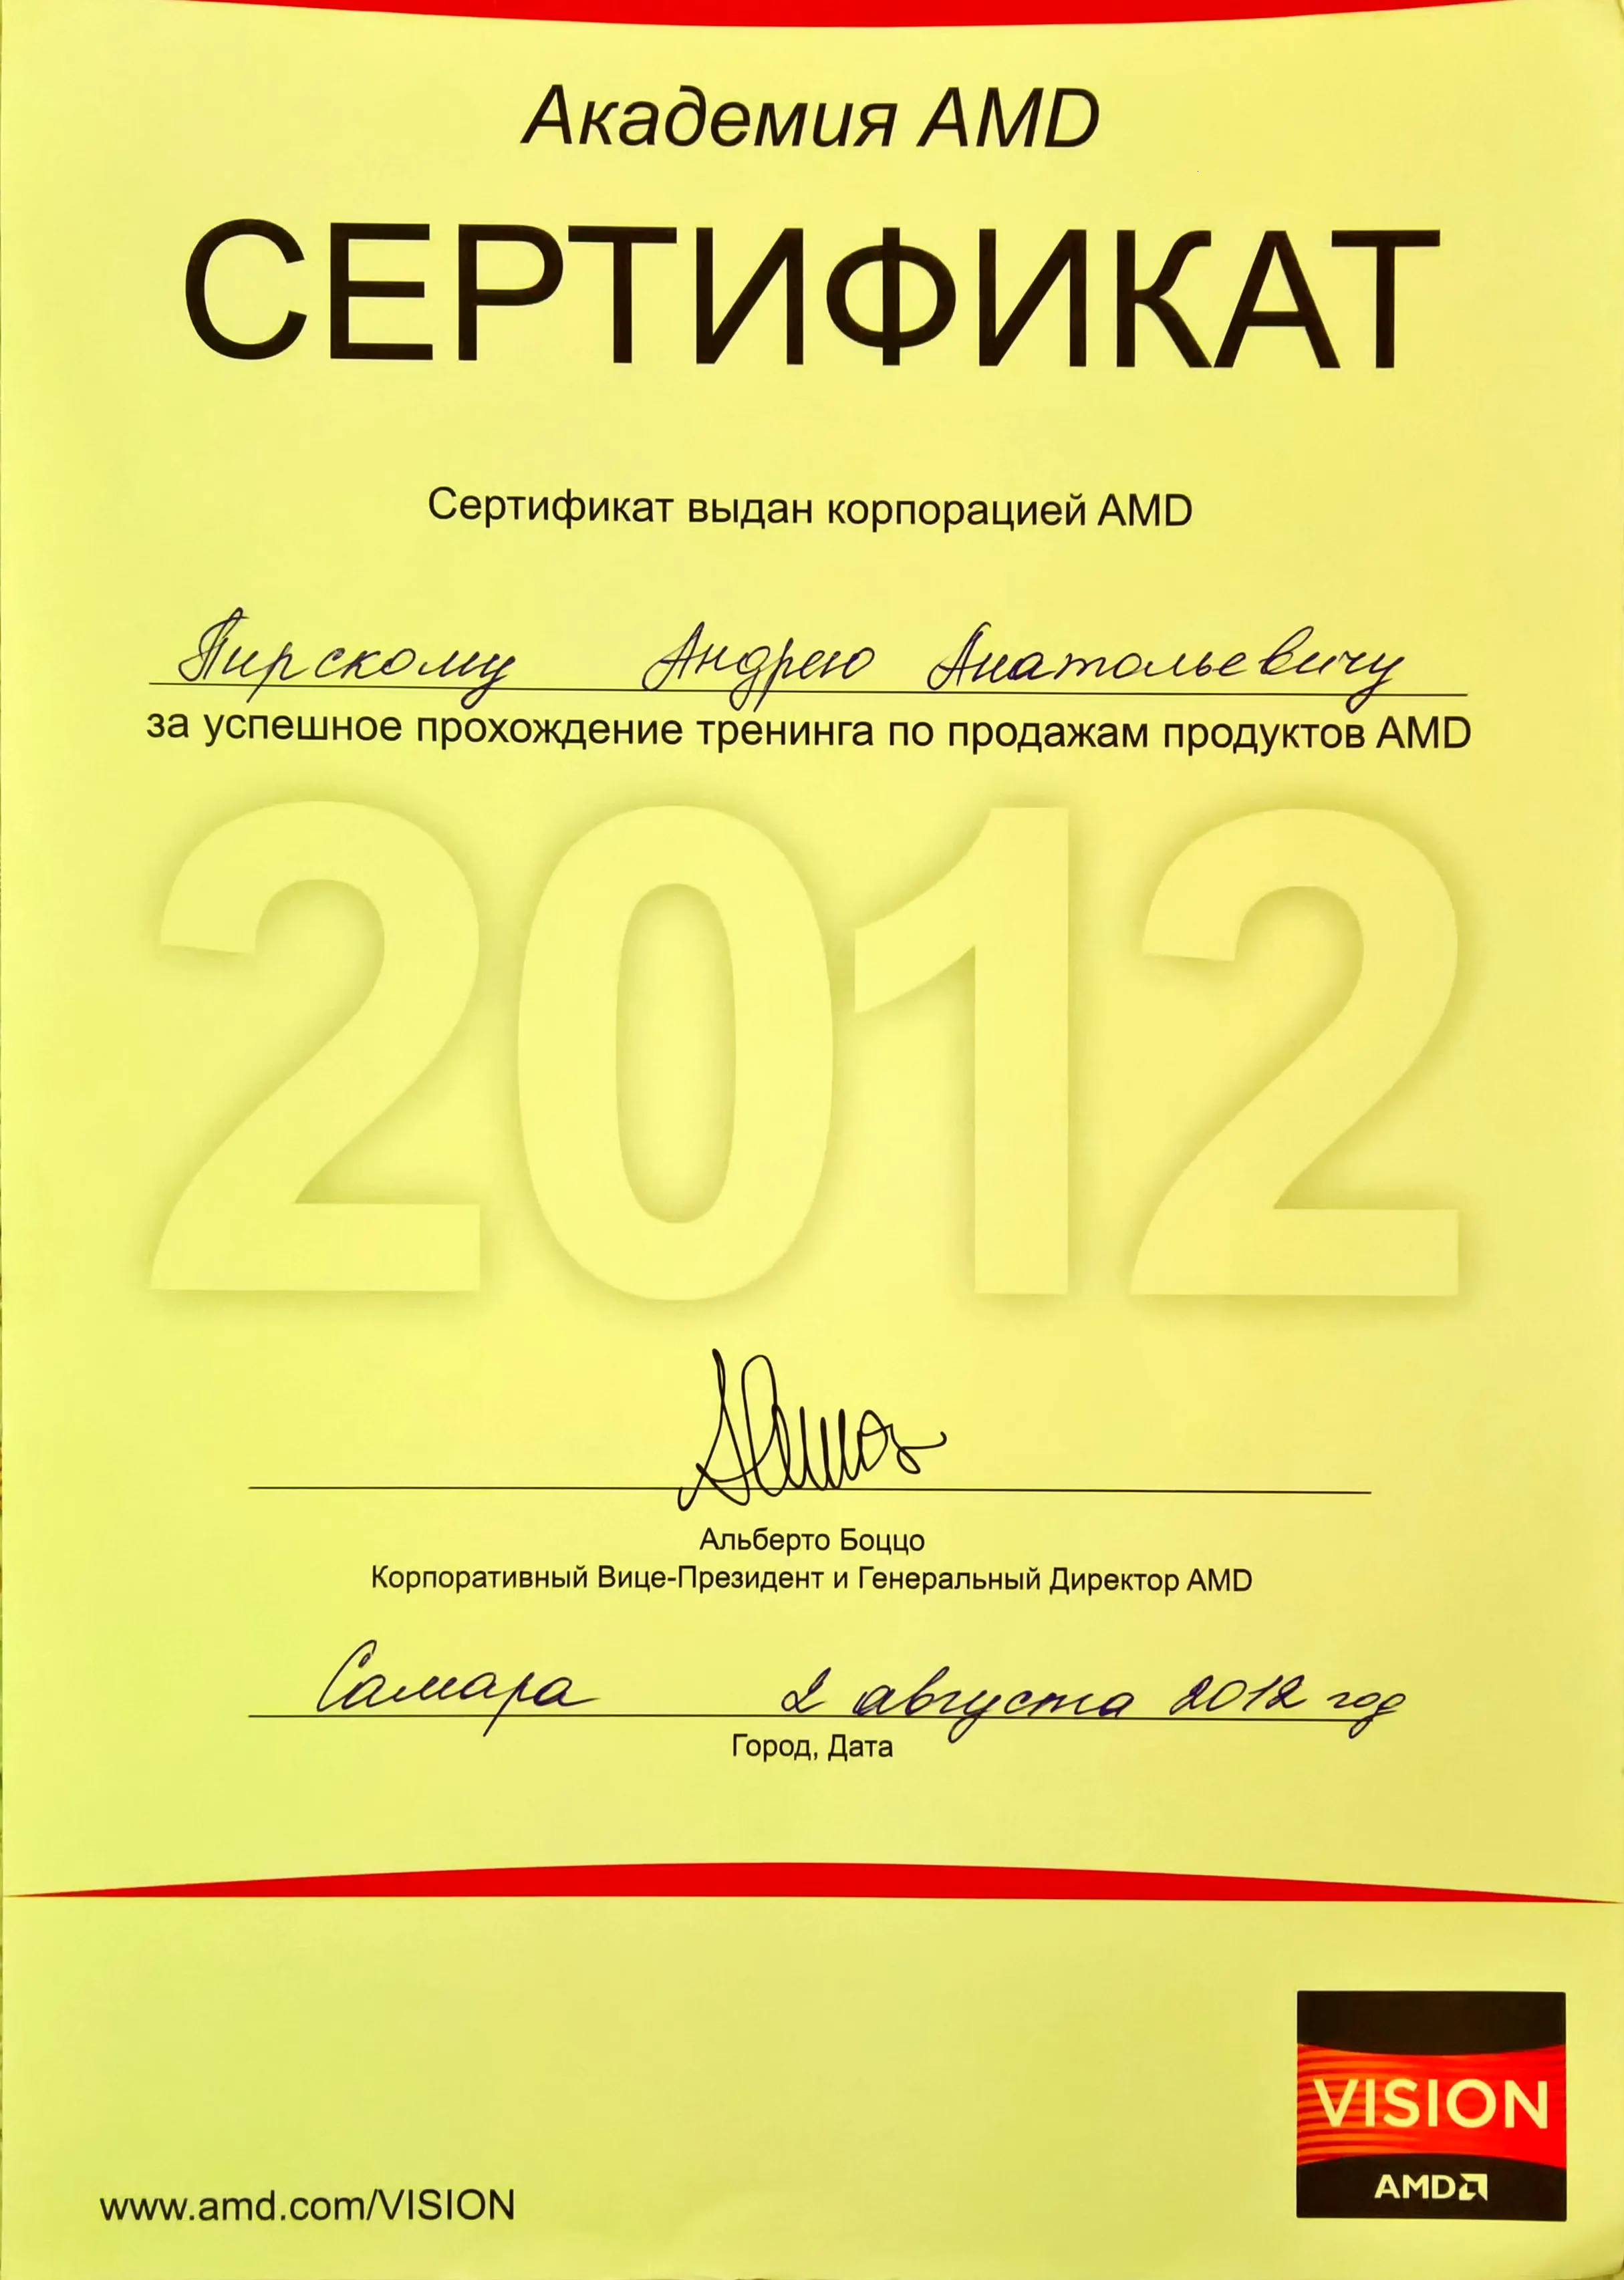 Академия AMD
СЕРТИФИКАТ
Сертификат выдан корпорацией AMD
Пирскому Андрею Анатольевичу
за успешное прохождение тренинга по продажам продуктов AMD
2012
Альберто Боццо
Корпоративный Вице-Президент и Генеральный Директор AMD
Самара 2 августа 2012 год
Город, Дата
VISION
AMD
www.amd.com/VISION